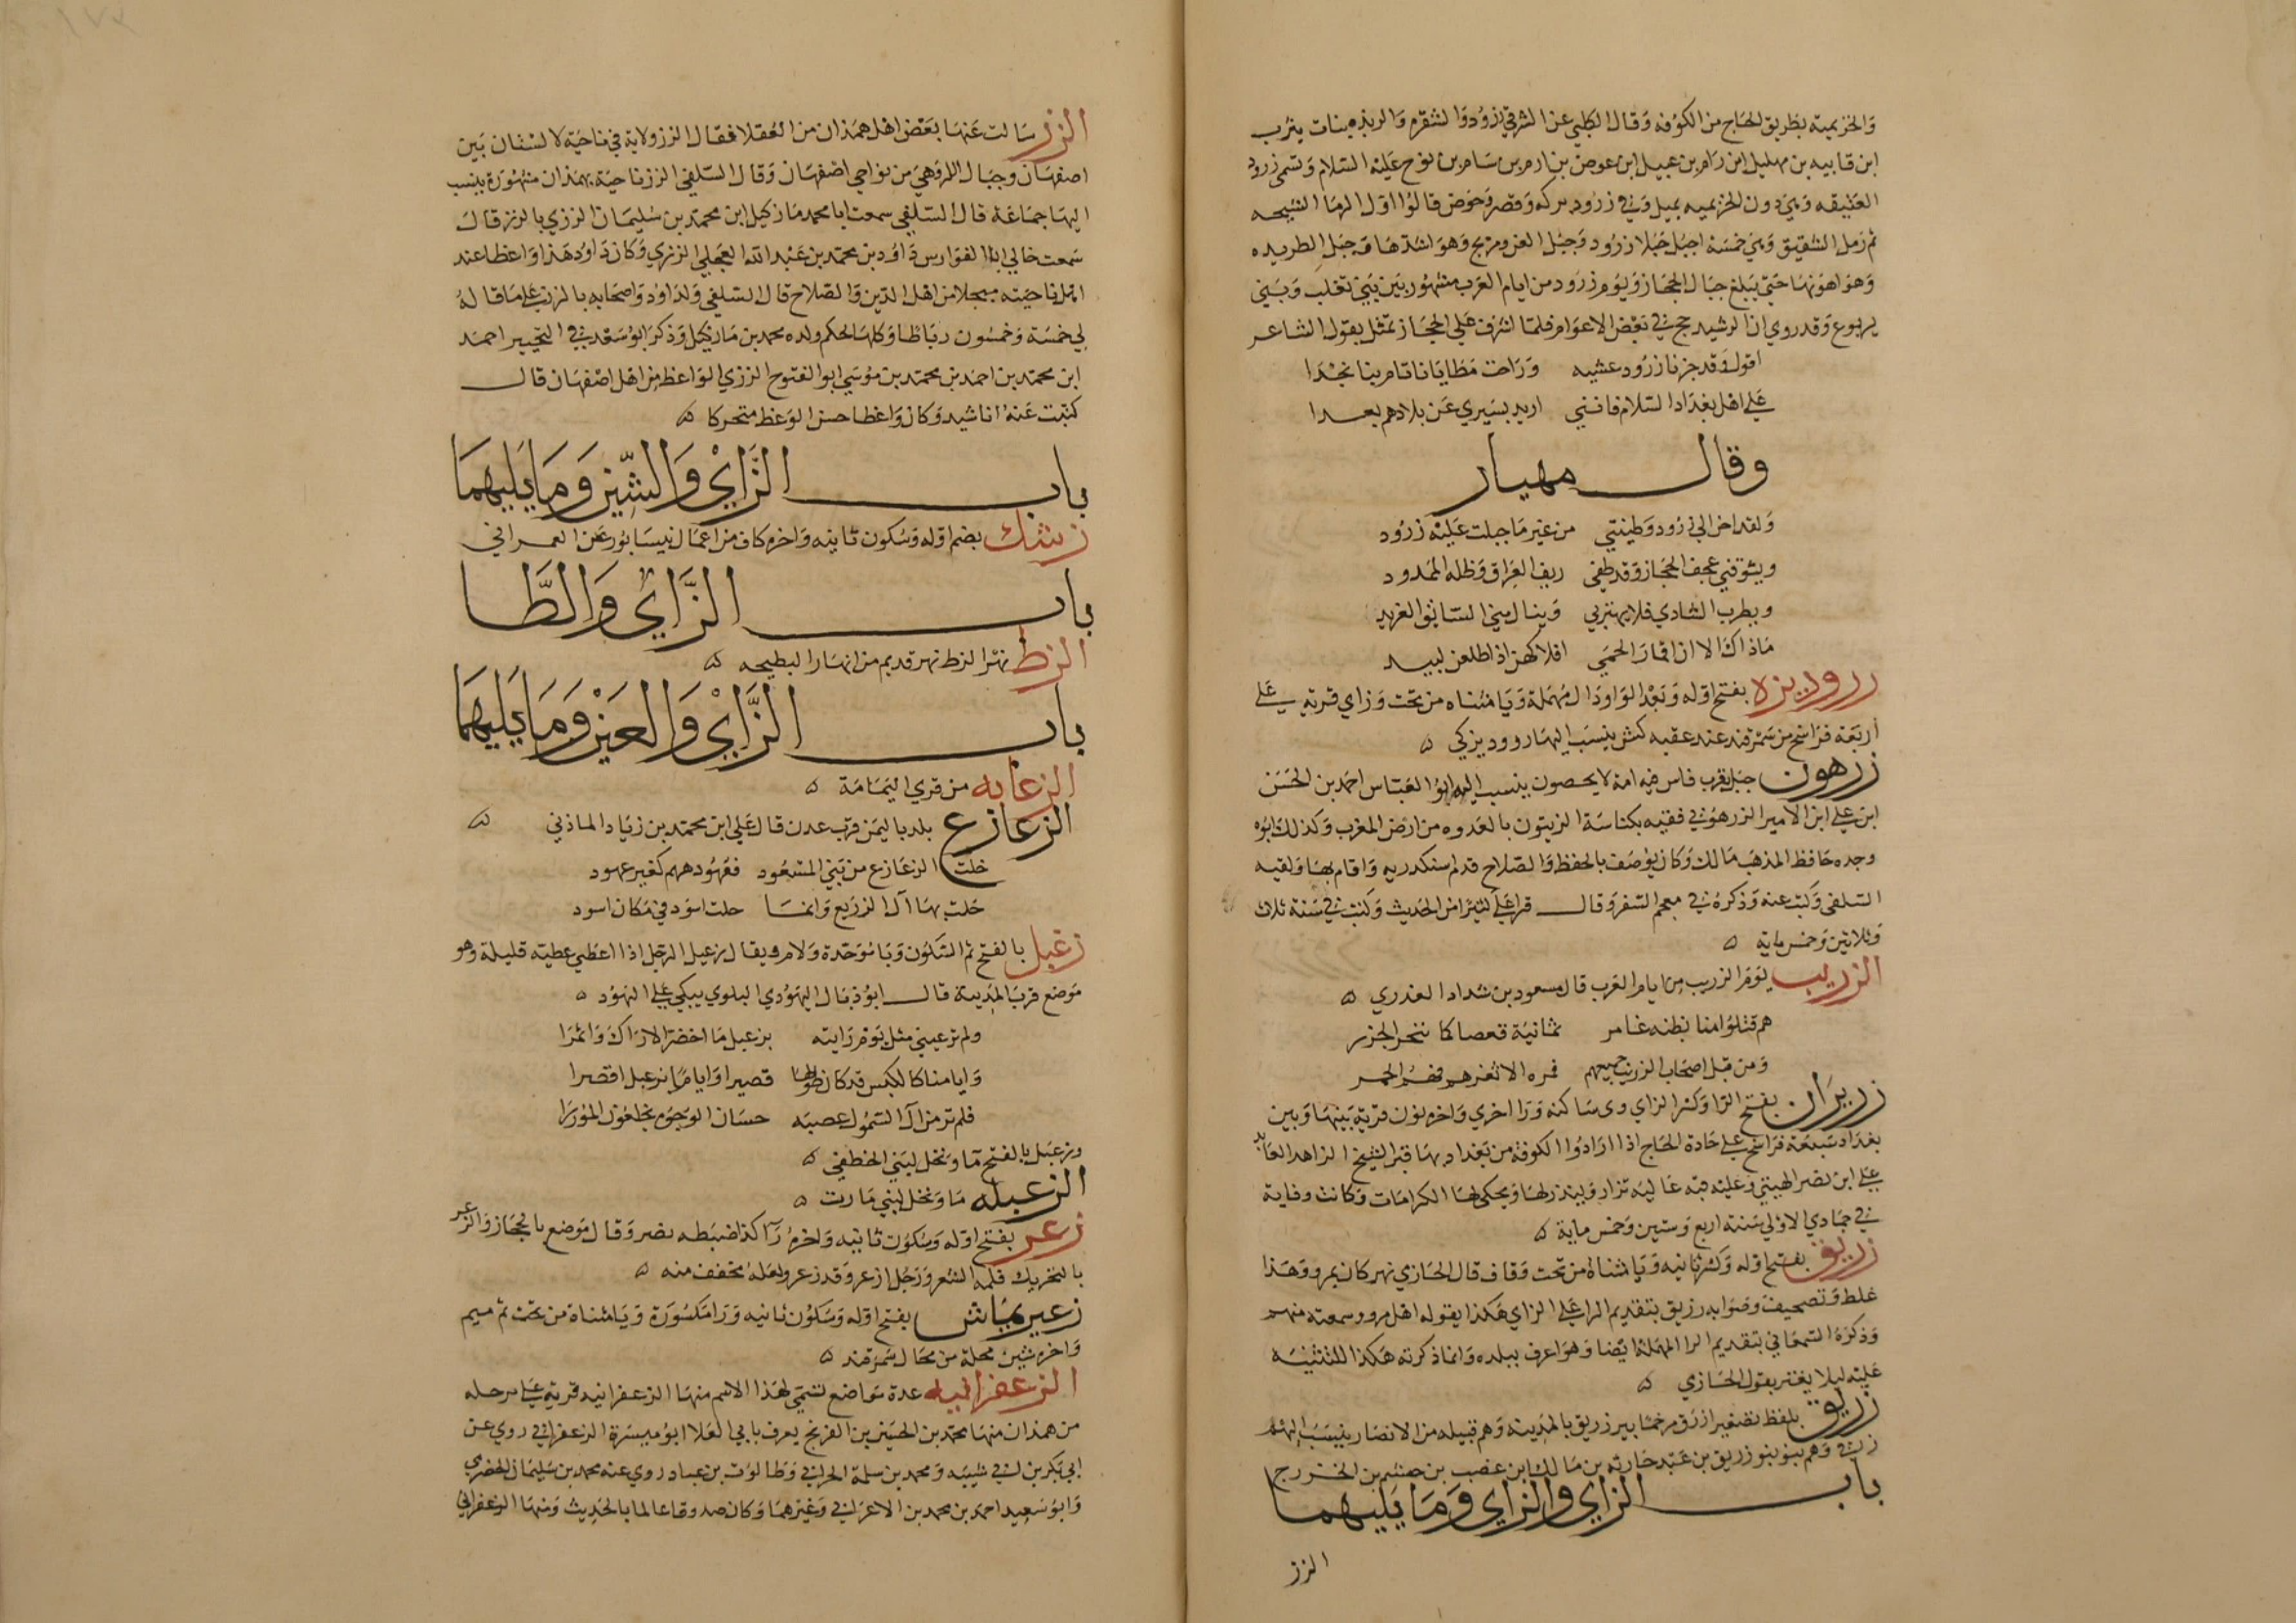 والخزيمية بطريق الحاج من الكوفه وقال الكلبي عن الشرقي زرود والشقره والربذه بنات يثرب
ابن قانيه بن مهليل ابن رام بن عبيل ابن عوص بن ارم بن سام بن نوح عليه السلام وتسمى زرود
العتيقه وهي دون الخزيميه بميل وفي زرود بركه وقصر وحوض قالوا اول الرمال الشيحه
ثم رمل الشقيق وهي خمسة اجبل جبلا زرود وجبل الغر ومربح وهو اشدها وجبل الطريده
وهو اهونها حتى يبلغ جبال الحجاز ويوم زرود من ايام العرب مشهور بين بني تغلب وبني
يربوع وقد روي ان الرشيد حج في بعض الاعوام فلما اشرف على الحجاز تمثل بقول الشاعر
اقول وقد جزنا زرود عشيه وراحت مطايانا تام بنا نجدا
على اهل بغداد السلام فانني اريد بسيري عن بلادهم بعدا
وقال مهيار
ولقد احن الى زرود وطينتي من غير ما جبلت عليه زرود
ويشوقني عجف الحجاز وقد طفي ريف العراق وظله الممدود
ويطرب الشادي فلا يهتزني وينال مني السائق الغريد
ماذاك الا ان اقمار الحمى افلاكهن اذا طلعن لبيد
زروديزه بفتح اوله وبعد الواو دال مهملة ويا مثناه من تحت وزاي قرية على
أربعة فراسخ من سمرقند عند عقبه كش ينسب اليها روديزكي ٥
زرهون جبل بقرب فاس فيه امة لا يحصون ينسب اليه ابو العباس احمد بن الحسن
ابن علي ابن الامير الزرهوني فقيه بكناسة الزيتون بالعدوه من ارض المغرب وكذلك ابوه
وجده حافظ المذهب مالك وكان يوصف بالحفظ والصلاح قدم اسكندريه واقام بها ولقيه
السلفي وكتب عنه وذكره في معجم السفر وقال قرا علي كثيرا من الحديث وكتب في سنة ثلاث
وثلاثين وخمس ماية ٥
الزريب يوم الزريب من ايام العرب قال مسعود بن شداد العذري ٥
هم قتلوا منا بطنه عامر ثمانية قعصا كما تنحر الجزر
ومن قبل اصحاب الزريب جميعهم
زريران بفتح الزا وكسر الزاي وى ساكنه ورا اخرى واخره نون قرية بينها وبين
بغداد سبعة فراسخ على جادة الحاج اذا ارادوا الكوفة من بغداد بها قبر الشيخ الزاهد العابد
علي ابن نصر الهيتي وعليه قبه عاليه تزار وينذر لها ويحكى لها الكرامات وكانت وفاته
في جمادي الاولى سنة اربع وستين وخمس ماية ٥
زريق بفتح اوله وكسر ثانيه ويا مثناة من تحت وقاف قال الحازي نهر كان بمرو وهذا
غلط وتصحيف وصوابه رزيق بتقديم الرا على الزاي هكذا يقوله اهل مرو وسمعته منهم
وذكره السمعاني بتقديم الرا المهملة ايضا وهو اعرف ببلده وانما ذكرته هكذا للتنبيه
عليه ليلا يغتر بقول الحازي ٥
زريق بلفظ تصغير ازرق مرخما بير زريق بالمدينه وهم قبيله من الانصار ينسب اليهم
زرقي وهم بنو زريق بن عبد حارثه بن مالك ابن غضب بن جشم بن الخزرج
باب الزاي والزاي وما يليهما
الزز
الزز سالت عنها بعض اهل همذان من العقلا فقال الزز ولاية في ناحية لالستان بين
اصفهان وجبال اللر وهي من نواحي اصفهان وقال السلفي الزز ناحية بهمذان مشهورة ينسب
اليها جماعة قال السلفي سمعت ابا محمد مازكيل ابن محمد بن سليمان الززي بالزز قال
سمعت خالي ابا الفوارس داود بن محمد بن عبد الله العجلي الززي وكان داود هذا واعظا عند
اهل ناحيته مبجلا من اهل الدين والصلاح قال السلفي ولداود واصحابه بالزز على ما قاله
لي خمسة وخمسون رباطا وكلها لحكم ولده محمد بن مازكيل وذكر ابو سعد في التحبير احمد
ابن محمد بن احمد بن محمد بن موسى ابو الفتوح الززي الواعظ من اهل اصفهان قال
كتبت عنه اناشيد وكان واعظا حسن الوعظ متحركا ٥
باب الزاي والشين وما يليهما
زشك بضم اوله وسكون ثانيه واخره كاف من اعمال نيسابور عن العمراني
باب الزاي والطا
الزط نهر الزط نهر قديم من انهار البطيحه ٥
باب الزاي والعين وما يليهما
الزعابه من قري اليمامة ٥
الزعازع بلد باليمن قرب عدن قال علي ابن محمد بن زياد الماذني ٥
خلت الزعازع من بني المسعود فعهودهم كغير عهود
حلت بها آل الزريع وانما حلت اسود في مكان اسود
زعبل بالفتح ثم السكون وبا موحدة ولام ويقال زعبل الرجل اذا اعطى عطيه قليلة وهو
موضع قرب المدينة قال ابو ذيال اليهودي البلوي يبكي على اليهود ٥
ولم تر عيني مثل يوم رايته بزعبل ما اخضر الاراك واثمرا
وايامنا كالكبس قد كان طولها قصيرا واياما بزعبل اقصرا
فلم تر من آل السموأل عصبه حسان الوجوه يخلعون المؤزرا
وزعبل بالفتح ما ونخل لبني الخطفي ٥
الزعبله ما ونخل لبني مازن ٥
زعر بفتح اوله وسكون ثانيه واخره را كذا ضبطه نصر وقال موضع بالحجاز والزعر
بالتحريك قلة الشعر ورجل ازعر وقد زعر ولعله مخفف منه ٥
زعيريماش بفتح اوله وسكون ثانيه ورا مكسورة ويا مثناة من تحت ثم ميم
واخره شين محلة من محال سمرقند ٥
الزعفرانيه عدة مواضع تسمى بهذا الاسم منها الزعفرانيه قرية على مرحله
من همذان منها محمد بن الحسين بن الفرج يعرف بابي العلا ابو ميسرة الزعفراني روي عن
ابي بكر بن ابي شيبه ومحمد بن سلمة الحراني وطالوت بن عباد روي عنه محمد بن سليمان الحضرمي
وابو سعيد احمد بن محمد بن الاعرابي وغيرهما وكان صدوقا عالما بالحديث ومنها الزعفراني